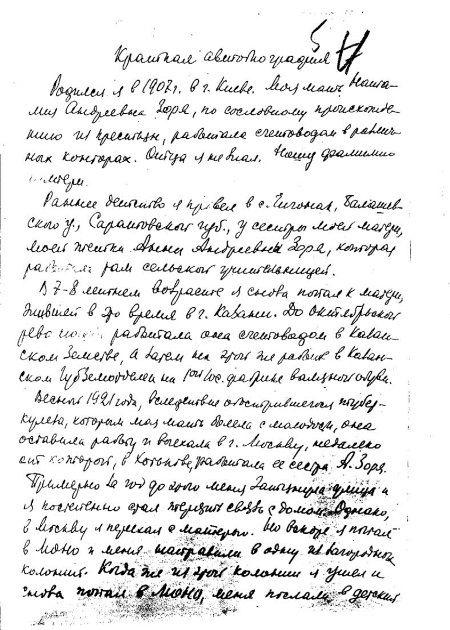 5
Краткая автобиография
Родился я в 1907 г. в г. Киеве. Моя мать, Ната-
лия Андреевна Зоря, по сословному происхожде-
нию из крестьян, работала счетоводом в различ-
ных конторах. Отца я не знал. Ношу фамилию
матери.
Раннее детство я провел в с. Чиганак, Балашев-
ского у., Саратовской губ., у сестры моей матери,
моей тетки Анны Андреевны Зоря, которая
работала там сельской учительницей.
В 7-8 летнем возрасте я снова попал к матери,
жившей в это время в г. Казани. До октябрьской
революции, работала она счетоводом в Казан-
ском Земстве, а затем на этой же работе в Казан-
ском Губземотделе и на 1ой Гос. фабрике валяной обуви.
Весной 1921 года, вследствие обострившегося тубер-
кулеза, которым моя мать болела с молодости, она
оставила работу и выехала в г. Москву, недалеко
от которой, в Хотькове, работала ее сестра А. Зоря.
Примерно за год до этого меня затянула улица и
я постепенно стал терять связь с домом. Однако,
в Москву я переехал с матерью. Но вскоре я попал
в МОНО и меня направили в одну из загородных
колоний. Когда же из этой колонии я ушел и
снова попал в МОНО, меня послали в детский